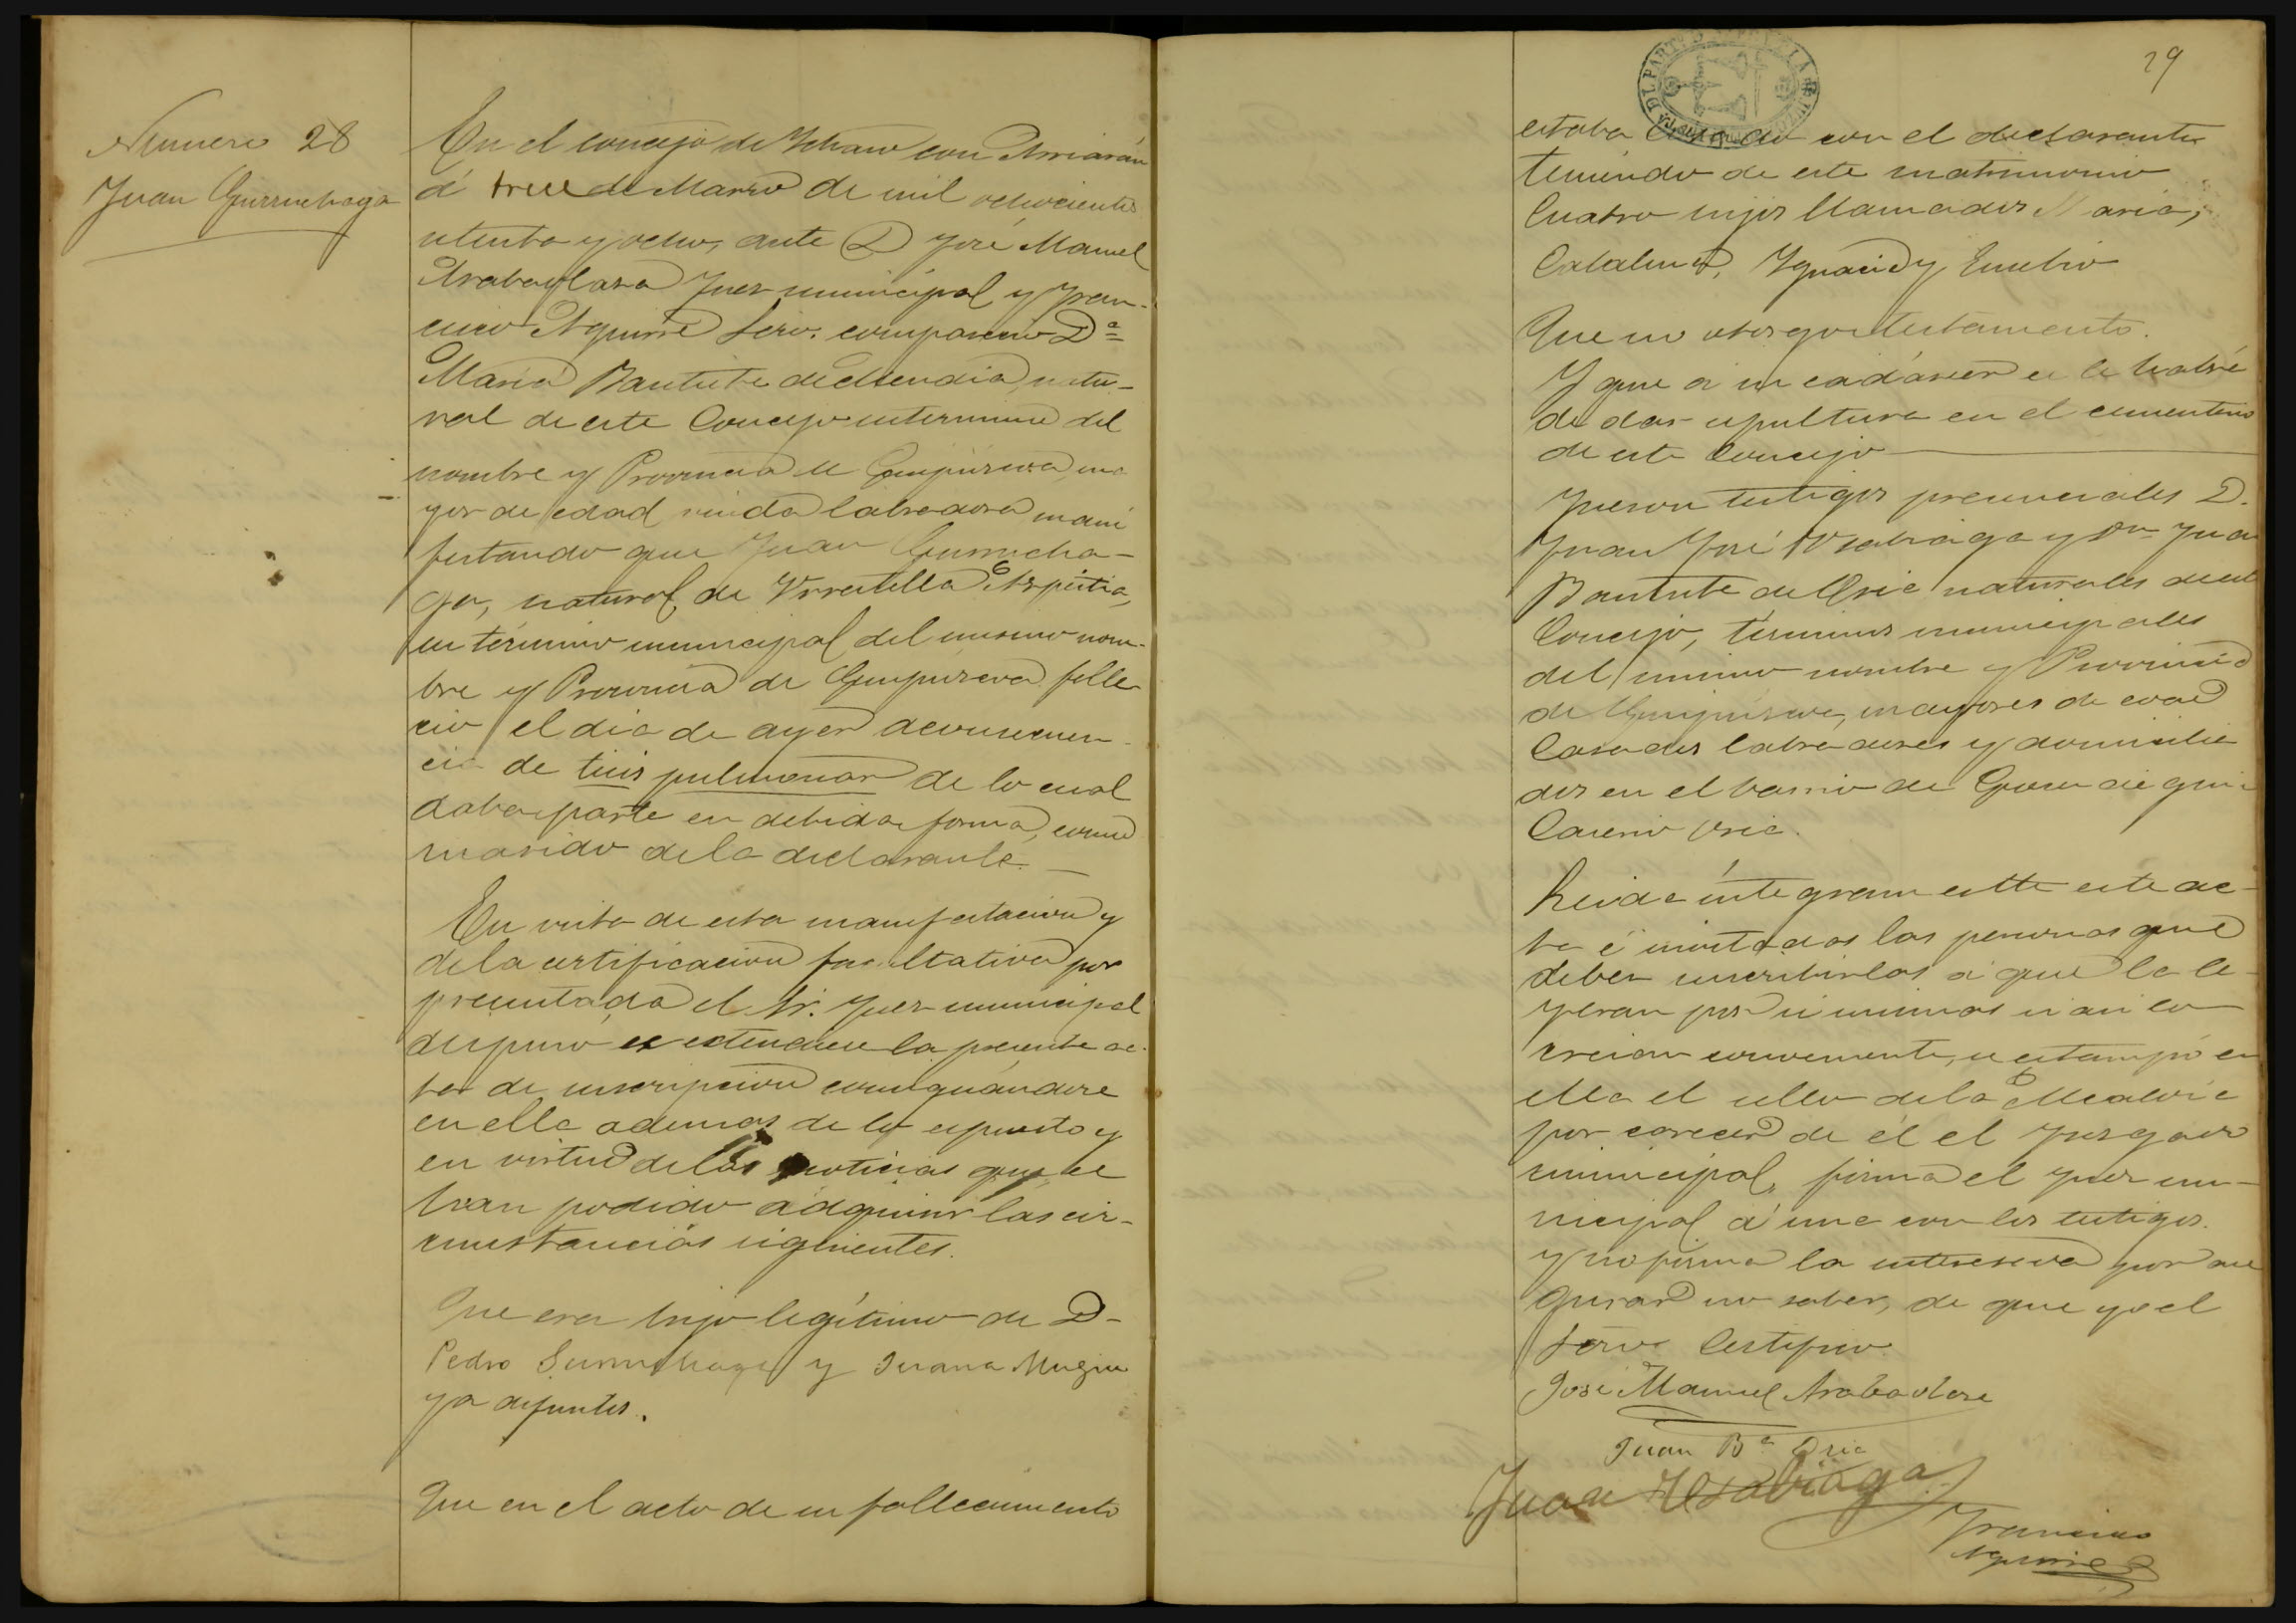 Numero 28
Juan Gurruchaga
En el concejo de Ychaso con Arriarán
á trece de Marzo de mil ochocientos
setenta y ocho, ante D José Manuel
Arabaolasa Juez municipal y Fran-
cisco Aguirre Srio. compareció Dª
María Bautista de Mendia, natu-
ral de este Concejo su termino del
nombre y Provincia de Guipúzcoa, ma
yor de edad viuda labradora mani
festando que Juan Gurrucha-
ga, natural de Urrestilla ó Azpeitia,
su término municipal del mismo nom-
bre y Provincia de Guipuzcoa falle
ció el dia de ayer á consecuen-
cia de tisis pulmonar de lo cual
daba parte en debida forma, como
marido de la declarante.
En vista de esta manifestacion y
de la certificacion facultativa por
presentada el Sr. Juez municipal
dispuso se extendiese la presente ac-
ta de inscripcion consignándose
en ella ademas de lo espuesto y
en virtud de las noticias que se
han podido adquirir las cir-
cunstancias siguientes.
Que era hijo legítimo de D-
Pedro Gurruchaga y Juana
ya difuntos.
Que en el acto de su fallecimiento
29
estaba casado con el declarante
teniendo de este matrimonio
Cuatro hijos llamados Maria,
Catalina, Ygnacio y Eusebio
Que no otorgó testamento.
Y que á su cadáver se le habrá
de dar sepultura en el cementerio
de este Concejo
Fueron testigos presenciales D.
Juan José Usabiaga y Dn Juan
Bautista de Oria naturales de este
Concejo, términos municipales
del mismo nombre y Provincia
de Guipúzcoa, mayores de edad
Casados labradores y domicilia
dos en el barrio de
Caserio Oria.
Leida íntegramente este ac-
ta é invitadas las personas que
deben suscribirlas á que la le-
yeran por si mismas si asi lo
creian conveniente, se estampó en
ella el sello de la Alcaldía
por carecer de él el Juzgado
municipal, firma el Juez mu-
nicipal á una con los testigos.
y no firma la interesada por ase
gurar no saber, de que yo el
Srio Certifico
José Manuel Arabaolasa
Juan Bª Oria
Juan Usabiaga
Francisco
Aguirre